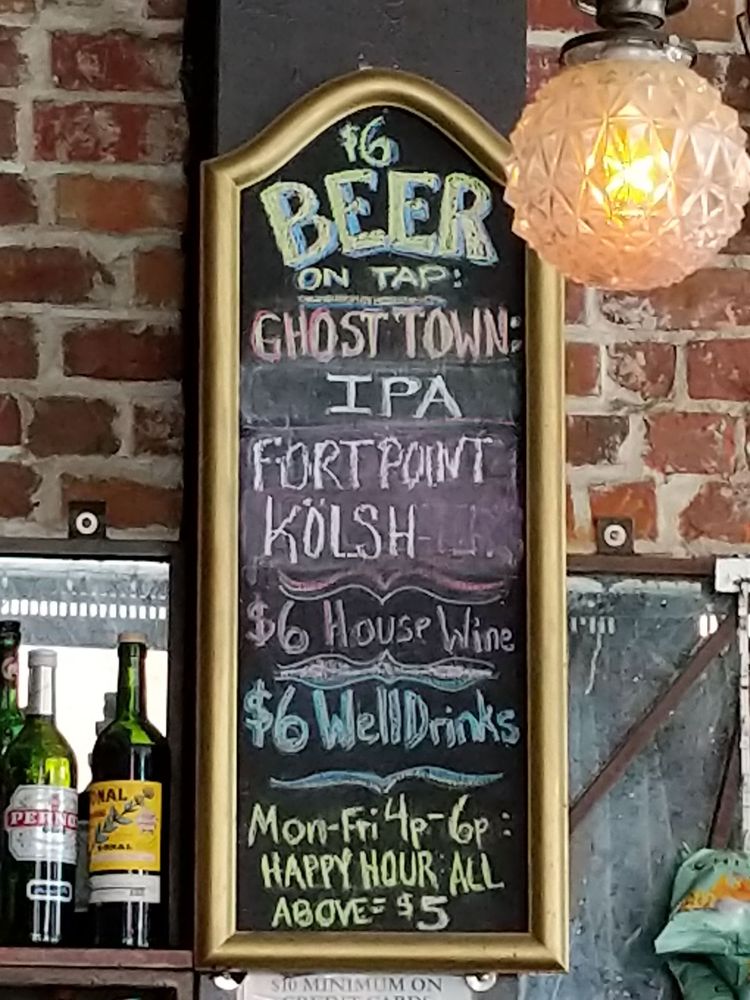 $6
BEER
ON TAP:
GHOST TOWN:
IPA
FORT POINT
KÖLSH
$6 House Wine
$6 Well Drinks
Mon-Fri 4p-6p:
HAPPY HOUR ALL
ABOVE = $5
$10 MINIMUM ON
CREDIT CARDS
PERNO
ONAL